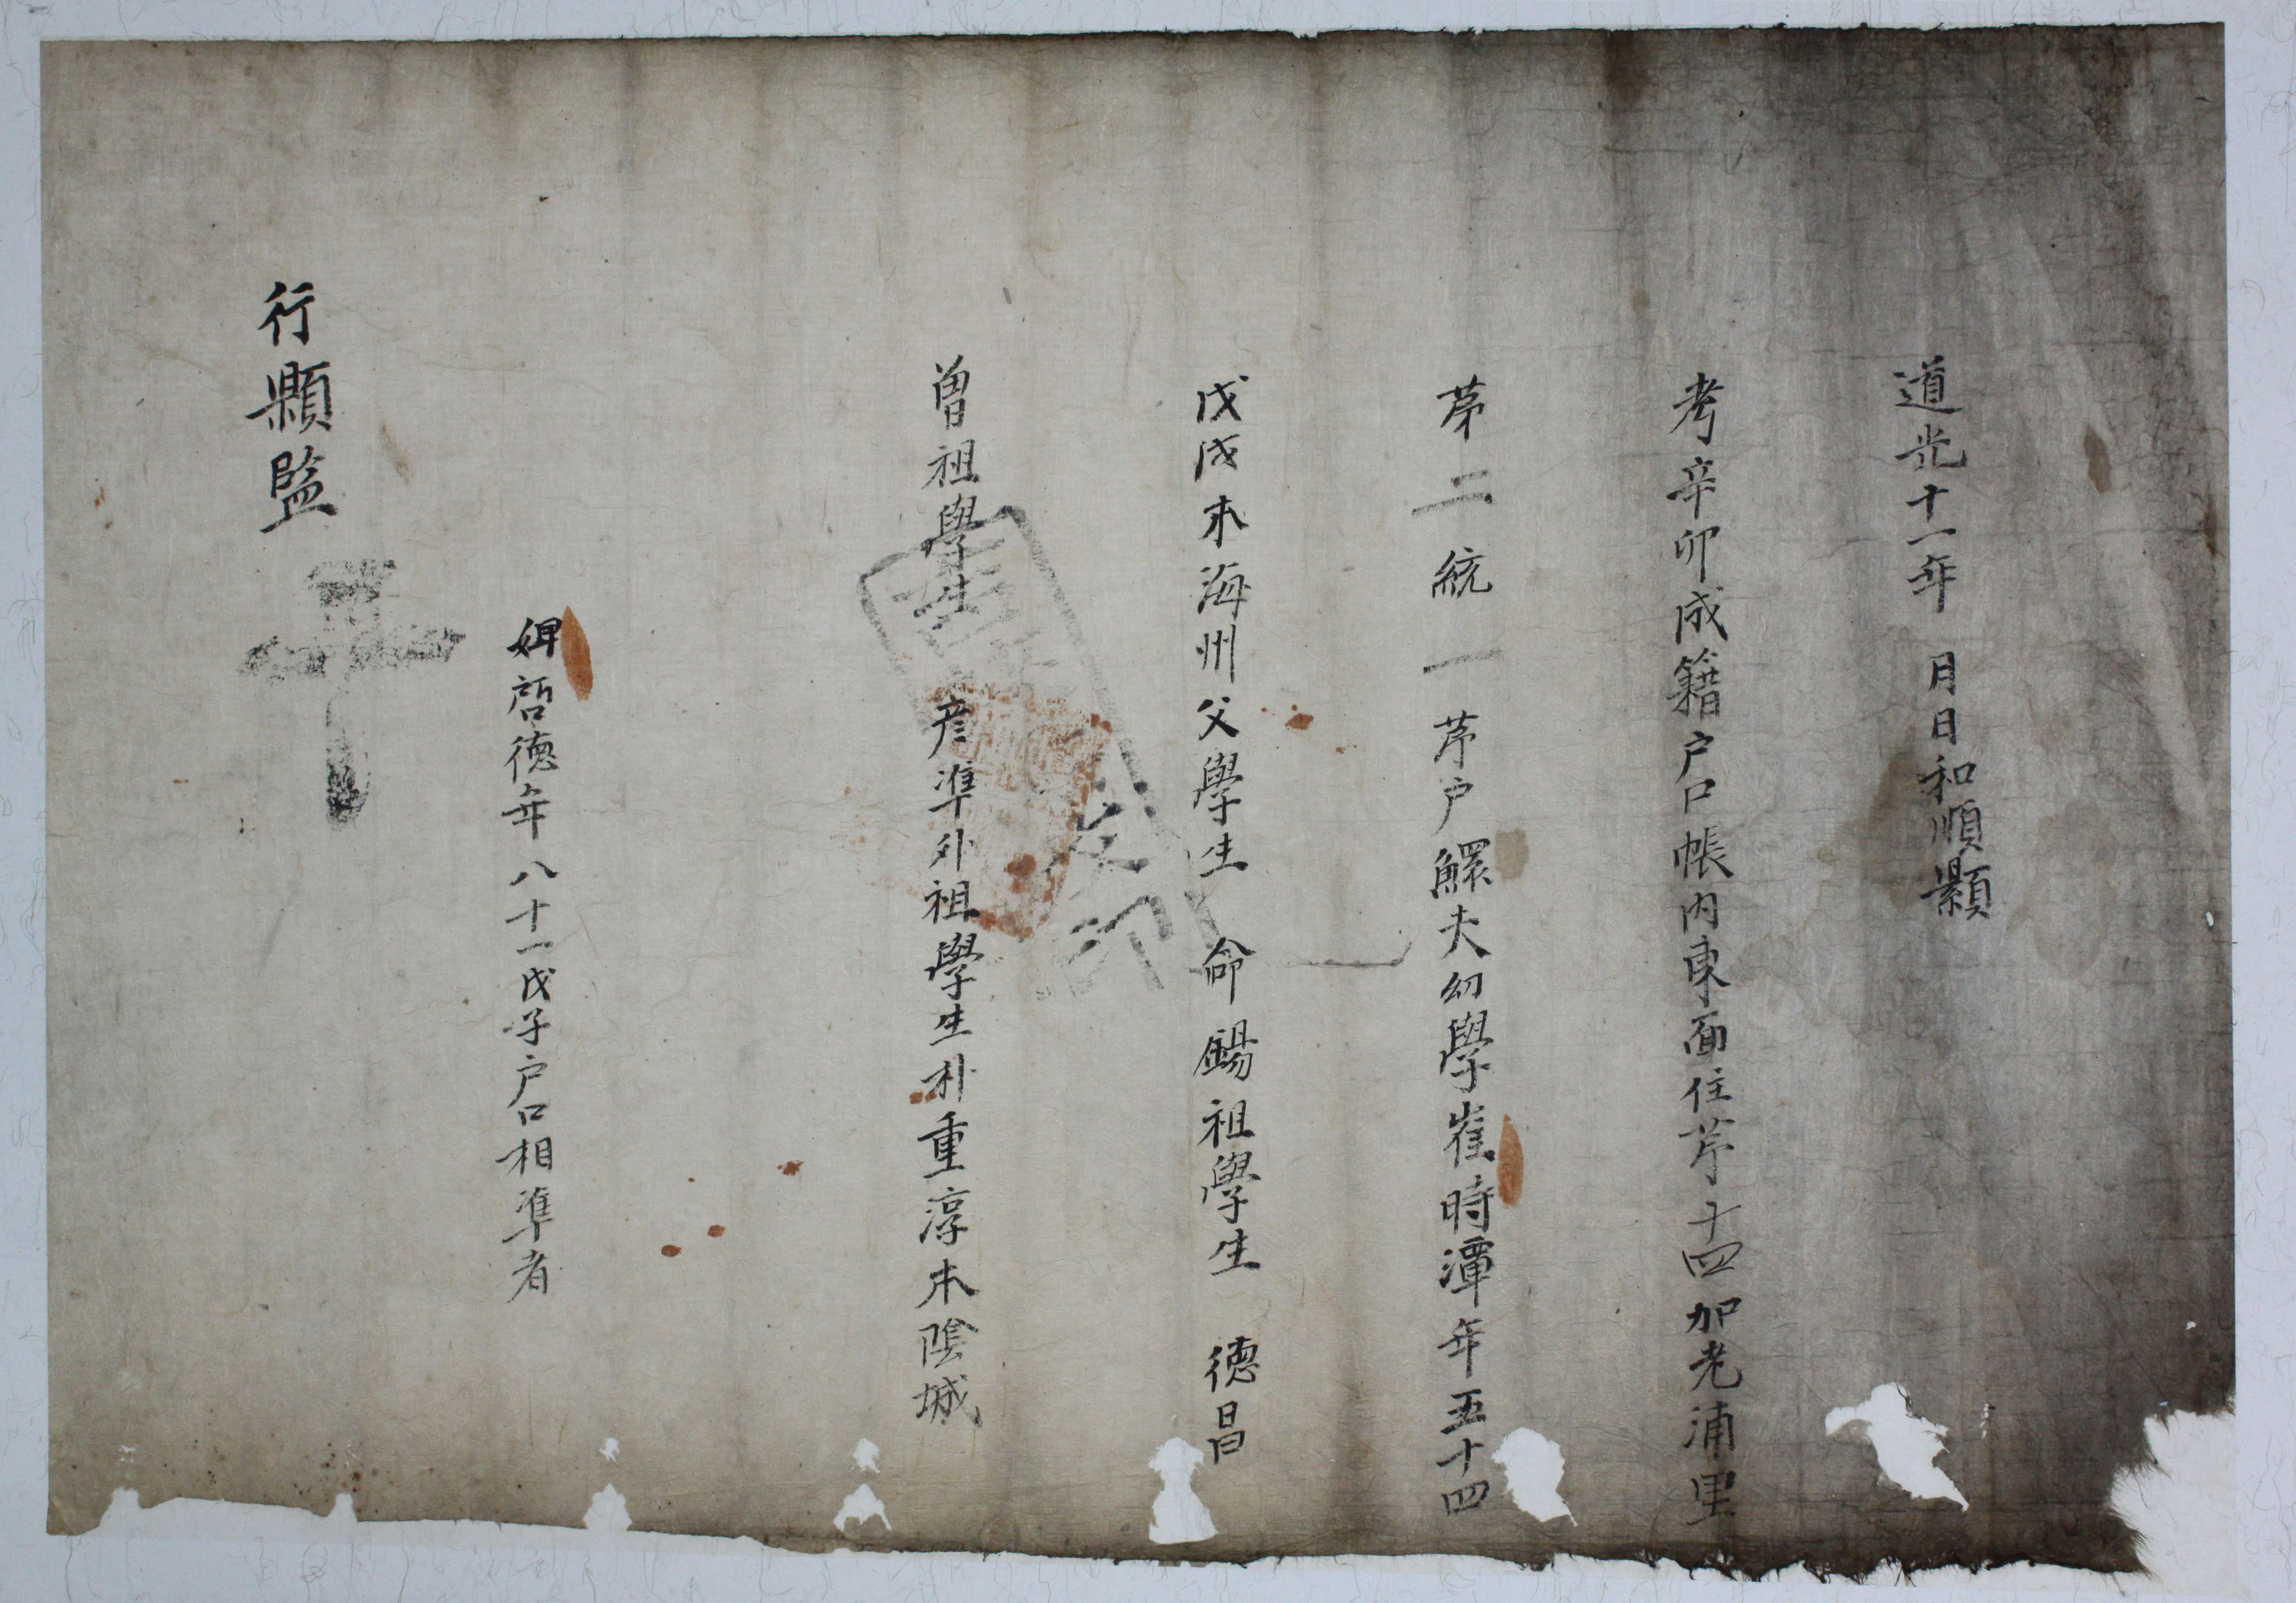 道光十一年 月日和順縣
考辛卯成籍户口帳内東面住芧十四加老浦里
苐二統一苐户鰥夫幼學崔時潭年五十四
戊戌本海州父學生 命錫祖學生 德昌
曾祖學生 彦準外祖學生朴重淳本陰城
婢啓德年八十一戊子户口相準者
行縣監